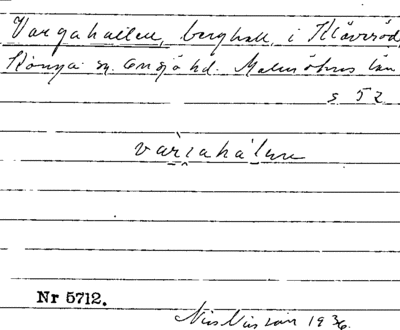 Vargahallen, berghall, i Klåveröd,
Rönga sn. Onsjö hd. Malmöhus län
s 52
varıahálnn
Nr 5712.
Nils Nilsson 1936.